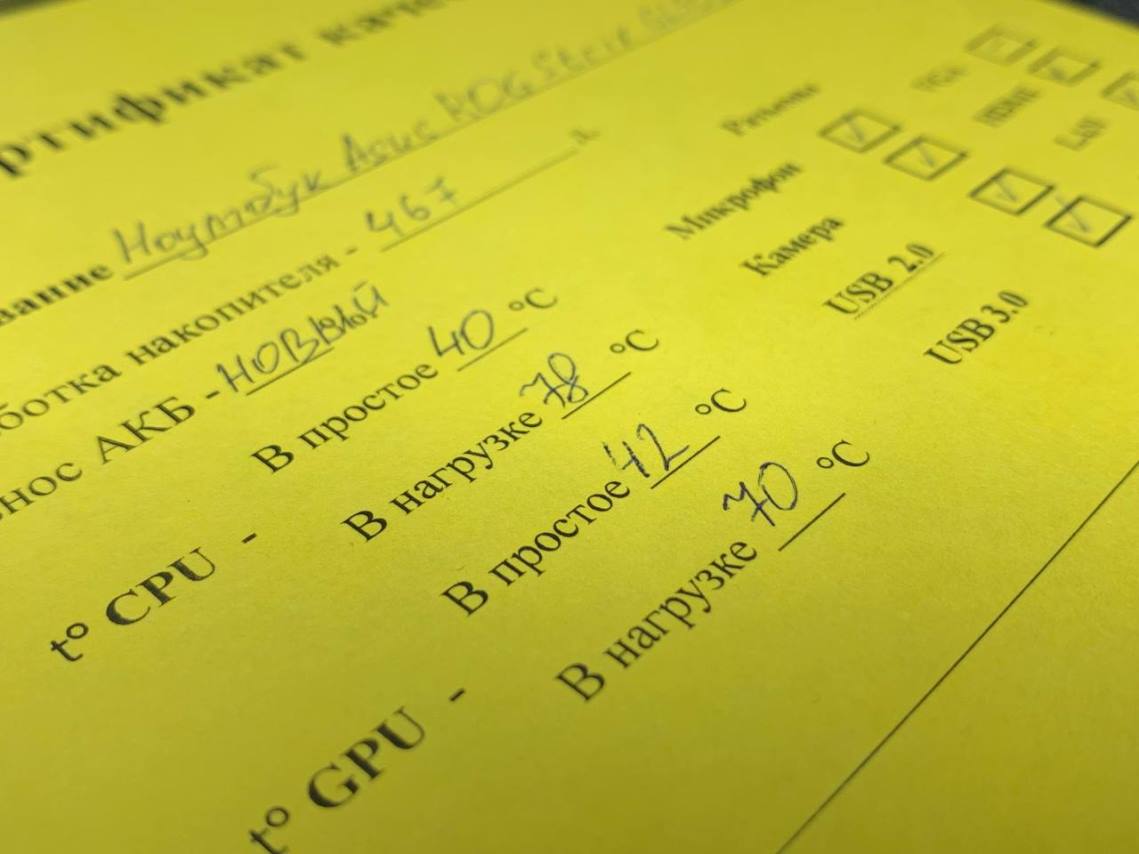 ртификат каче
вание Ноутбук Asus ROG Strix
ботка накопителя - 467
знос АКБ - новый
t° CPU - В простое 40 °C
В нагрузке 78 °C
t° GPU - В простое 42 °C
В нагрузке 70 °C
Разъемы
VGA
HDMI
LAN
Микрофон
Камера
USB 2.0
USB 3.0